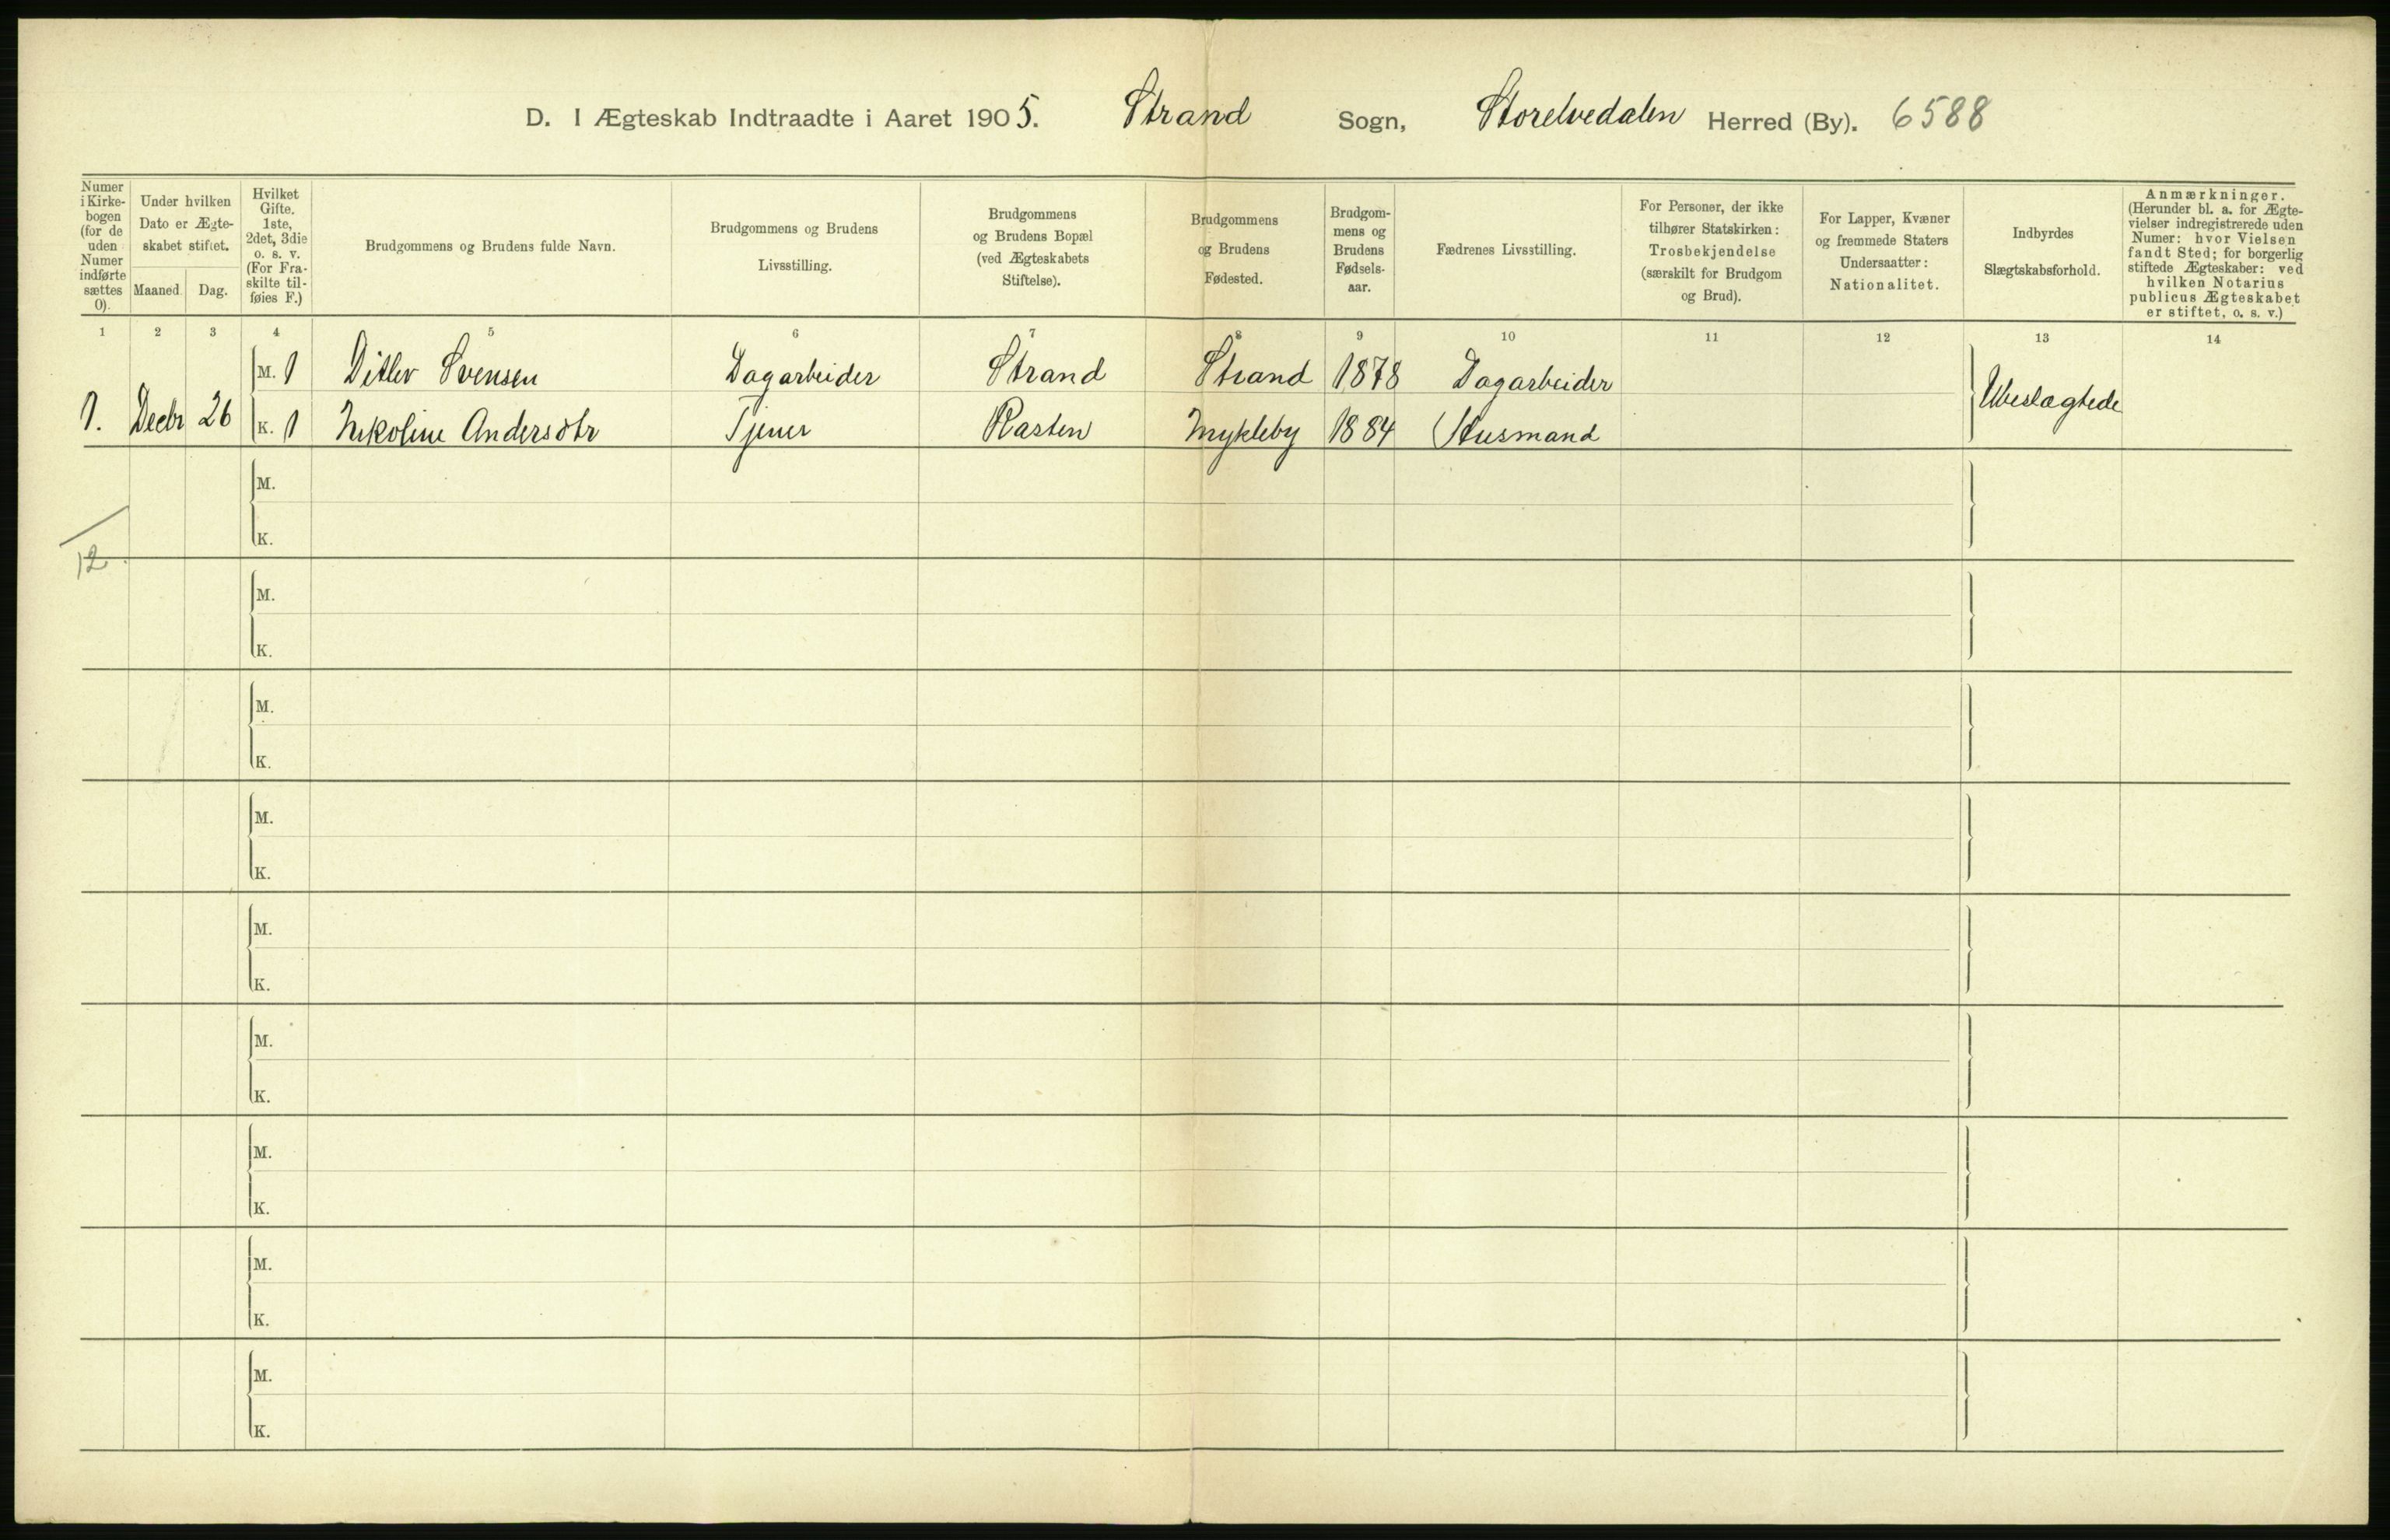 D. I Ægteskab Indtraadte i Aaret 1905. Strand Sogn, Storelvedalen Herred (By). 6588
Numer i Kirkebogen (for de uden Numer indførte sættes 0).
Under hvilken Dato er Ægteskabet stiftet.
Maaned. Dag.
Hvilket Gifte. 1ste, 2det, 3die o. s. v. (For Fraskilte tilføies F.)
Brudgommens og Brudens fulde Navn.
Brudgommens og Brudens Livsstilling.
Brudgommens og Brudens Bopæl (ved Ægteskabets Stiftelse).
Brudgommens og Brudens Fødested.
Brudgommens og Brudens Fødselsaar.
Fædrenes Livsstilling.
For Personer, der ikke tilhører Statskirken: Trosbekjendelse (særskilt for Brudgom og Brud).
For Lapper, Kvæner og fremmede Staters Undersaatter: Nationalitet.
Indbyrdes Slægtskabsforhold.
Anmærkninger. (Herunder bl. a. for Ægtevielser indregistrerede uden Numer: hvor Vielsen fandt Sted; for borgerlig stiftede Ægteskaber: ved hvilken Notarius publicus Ægteskabet er stiftet, o. s. v.)
1 2 3 4 5 6 7 8 9 10 11 12 13 14
M. 1 Ditlev Svensen Dagarbeider Strand Strand 1878 Dagarbeider
1. Decbr 26 K. 1 Nekoline Andersdtr Tjener Rasten Mykleby 1884 Husmand Ubeslægtede
M.
K.
12
M.
K.
M.
K.
M.
K.
M.
K.
M.
K.
M.
K.
M.
K.
M.
K.